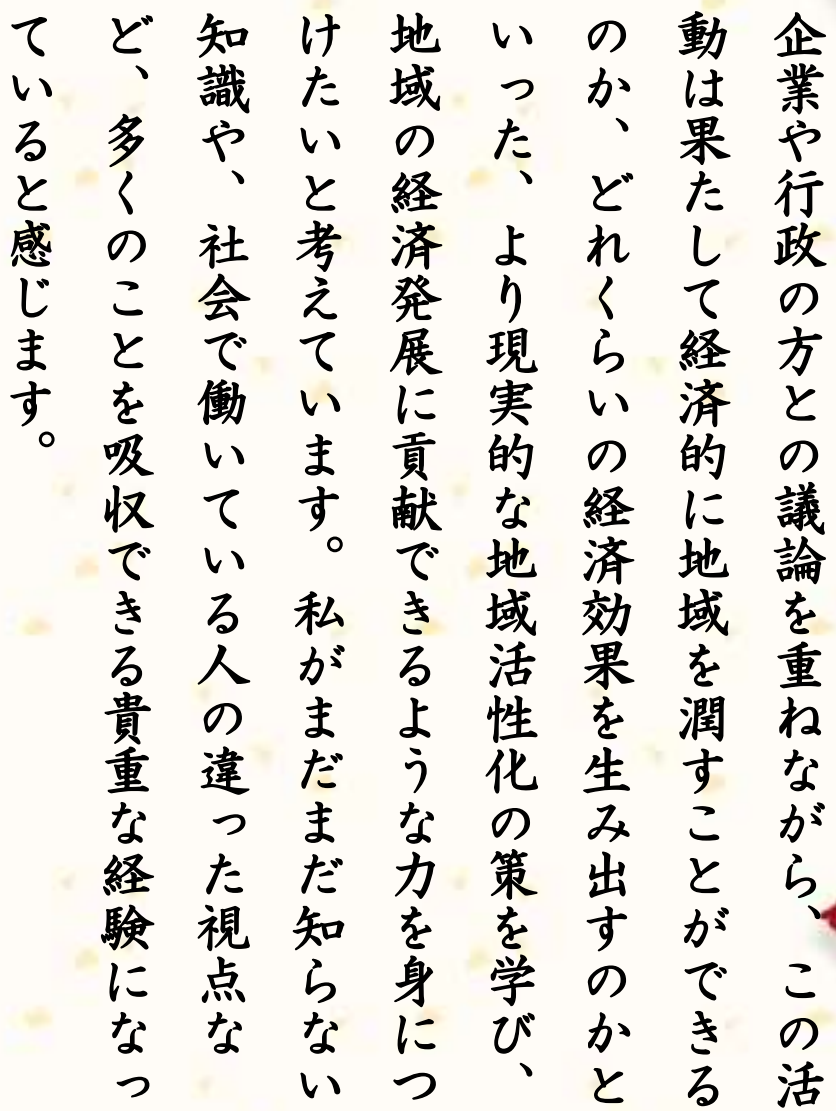 企業や行政の方との議論を重ねながら、この活
動は果たして経済的に地域を潤すことができる
のか、どれくらいの経済効果を生み出すのかと
いった、より現実的な地域活性化の策を学び、
地域の経済発展に貢献できるような力を身につ
けたいと考えています。私がまだまだ知らない
知識や、社会で働いている人の違った視点な
ど、多くのことを吸収できる貴重な経験になっ
ていると感じます。